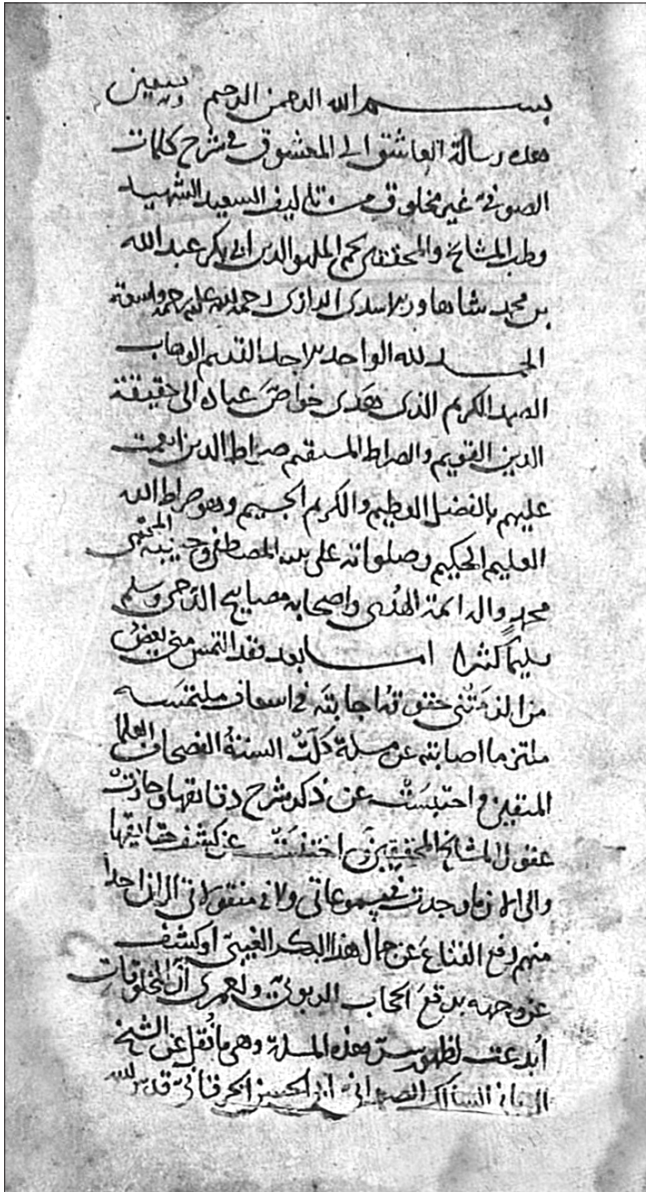 بسم الله الرحمن الرحيم وبه نستعين
هذه رسالة العاشق الى المعشوق في شرح كلمات
الصوفي غير مخلوق من تاليف السعيد الشهيد
قطب المشايخ والمحققين نجم الملة والدين ابي بكر عبد الله
بن محمد شاهاور الاسدي الرازي رحمة الله عليه رحمة واسعة
الحمد لله الواحد الاحد القديم الوهاب
الصمد الكريم الذي هدى خواص عباده الى حقيقة
الدين القويم والصراط المستقيم صراط الذين انعمت
عليهم بالفضل العظيم والكريم الجسيم وهو صراط الله
العليم الحكيم وصلواته على نبيه المصطفى وحبيبه المجتبى
محمد واله ائمة الهدى واصحابه مصابيح الدجى وسلم
تسليما كثيرا اما بعد فقد التمس مني بعض
من الزمتني حقوقه اجابته في اسعاف ملتمسه
ملتزما اصابته عن مسلة كلت السنة الفصحاء العلماء
المتقين واحتبست عن ذكر شرح دقائقها وحارت
عقول المشايخ المحققين واختفت عن كشف حقايقها
والى الان ما وجدت في مسموعاتي ولا في منقولاتي الى الان احدا
منهم رفع القناع عن جمال هذا البكر الغيبي او كشف
عن وجهه برقع الحجاب الربوبي ولعمري ان المخلوقات
ابدعت لظهور سر هذه المسلة وهي ما نقل عن الشيخ
الرباني السالك الصمداني ابي الحسن الخرقاني قدس الله